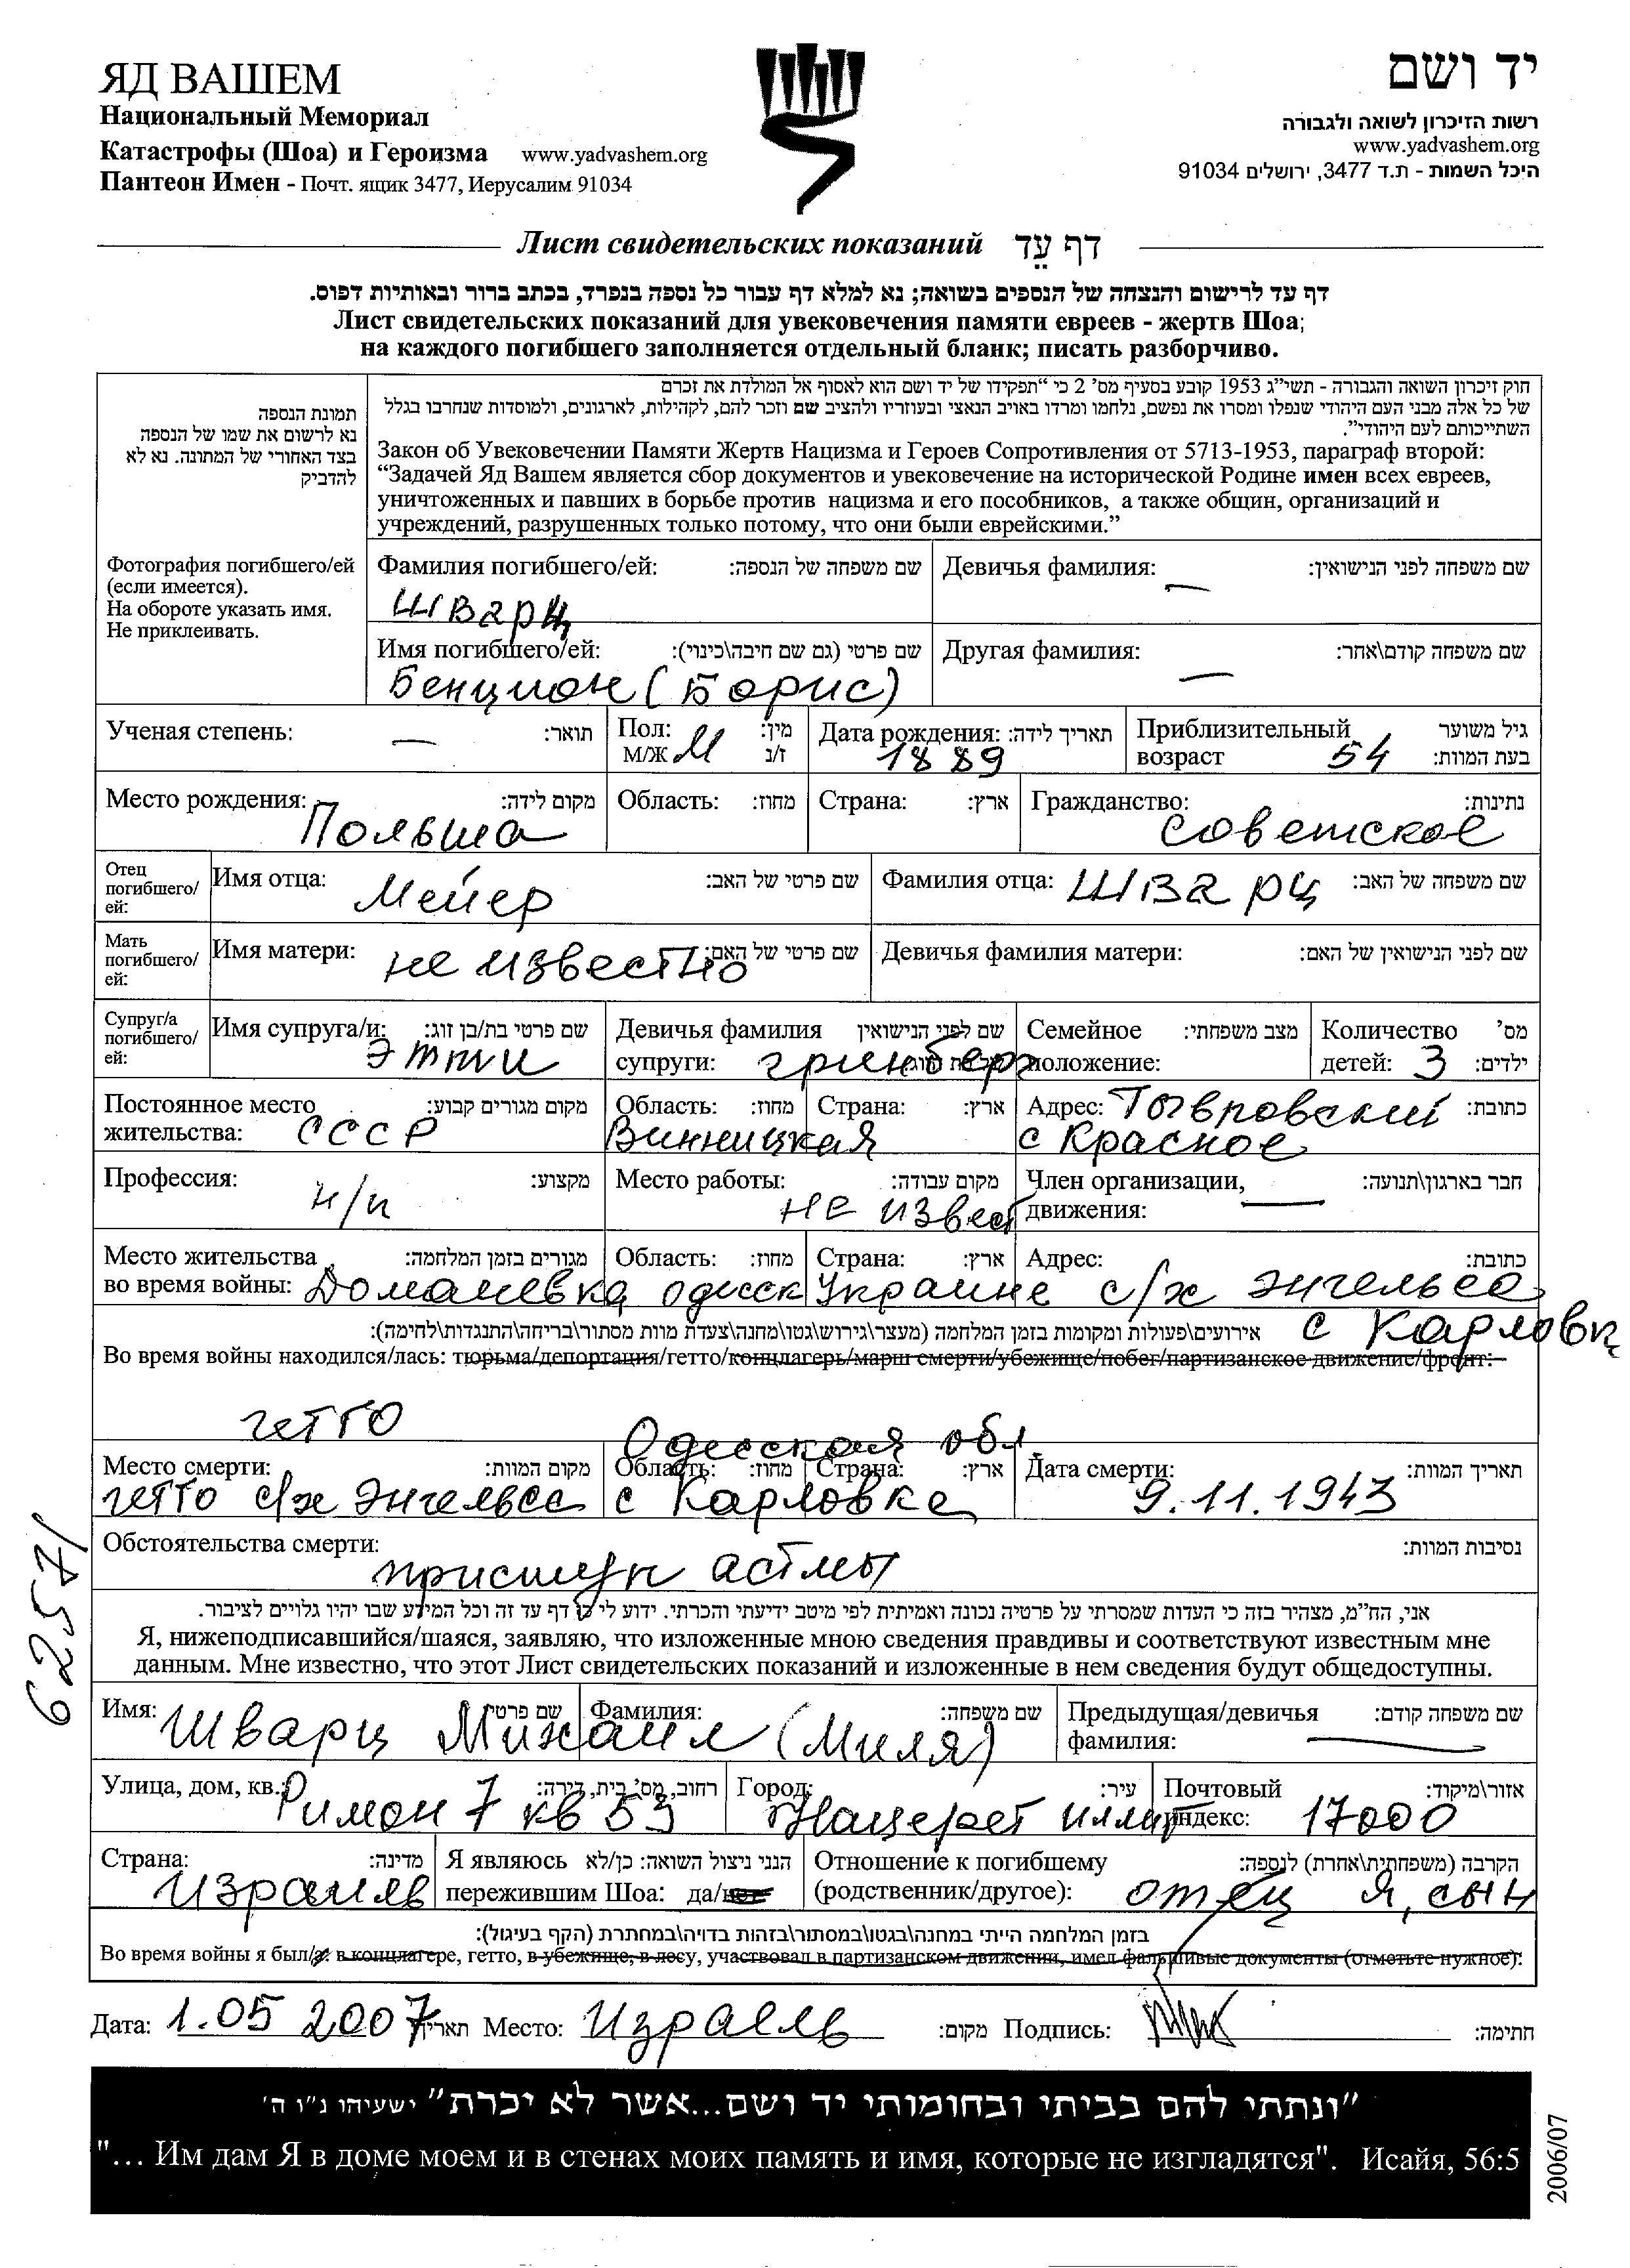 ЯД ВАШЕМ
Национальный Мемориал
Катастрофы (Шоа) и Героизма www.yadvashem.org
Пантеон Имен - Почт. ящик 3477, Иерусалим 91034
יד ושם
רשות הזיכרון לשואה ולגבורה
www.yadvashem.org
היכל השמות - ת.ד 3477, ירושלים 91034
Лист свидетельских показаний דף עֵד
דף עד לרישום והנצחה של הנספים בשואה; נא למלא דף עבור כל נספה בנפרד, בכתב ברור ובאותיות דפוס.
Лист свидетельских показаний для увековечения памяти евреев - жертв Шоа;
на каждого погибшего заполняется отдельный бланк; писать разборчиво.
תמונת הנספה
נא לרשום את שמו של הנספה
בצד האחורי של המתונה. נא לא
להדביק
Фотография погибшего/ей
(если имеется).
На обороте указать имя.
Не приклеивать.
חוק זיכרון השואה והגבורה - תשי"ג 1953 קובע בסעיף מס' 2 כי "תפקידו של יד ושם הוא לאסוף אל המולדת את זכרם
של כל אלה מבני העם היהודי שנפלו ומסרו את נפשם, נלחמו ומרדו באויב הנאצי ובעוזריו ולהציב שם וזכר להם, לקהילות, לארגונים, ולמוסדות שנחרבו בגלל
השתייכותם לעם היהודי".
Закон об Увековечении Памяти Жертв Нацизма и Героев Сопротивления от 5713-1953, параграф второй:
"Задачей Яд Вашем является сбор документов и увековечение на исторической Родине имен всех евреев,
уничтоженных и павших в борьбе против нацизма и его пособников, а также общин, организаций и
учреждений, разрушенных только потому, что они были еврейскими."
Фамилия погибшего/ей: שם משפחה של הנספה: Девичья фамилия: — שם משפחה לפני הנישואין:
Шварц
Имя погибшего/ей: שם פרטי (גם שם חיבה\כינוי): Другая фамилия: — שם משפחה קודם\אחר:
Бенцион (Борис)
Ученая степень: — תואר: Пол: М/Ж М מין: ז/נ Дата рождения: תאריך לידה: 1889 Приблизительный возраст 54 גיל משוער בעת המוות:
Место рождения: מקום לידה: Область: מחוז: Страна: ארץ: Гражданство: נתינות:
Польша советское
Отец погибшего/ей: Имя отца: Мейер שם פרטי של האב: Фамилия отца: Шварц שם משפחה של האב:
Мать погибшего/ей: Имя матери: не известно שם פרטי של האם: Девичья фамилия матери: שם לפני הנישואין של האם:
Супруг/а погибшего/ей: Имя супруга/и: שם פרטי בת/בן זוג: Этти Девичья фамилия супруги: שם לפני הנישואין гринберг Семейное положение: מצב משפחתי: Количество детей: 3 מס' ילדים:
Постоянное место жительства: מקום מגורים קבוע: СССР Область: מחוז: Страна: ארץ: Винницкая Адрес: כתובת: Тывровский
с Красное
Профессия: н/и מקצוע: Место работы: מקום עבודה: не извест Член организации, движения: — חבר בארגון\תנועה:
Место жительства во время войны: מגורים בזמן המלחמה: Доманевка Область: מחוז: одесск Страна: ארץ: Украине Адрес: כתובת: с/х Энгельса
с Карловк
אירועים\פעולות ומקומות בזמן המלחמה (מעצר\גירוש\גטו\מחנה\צעדת מוות מסתור\בריחה\התנגדות\לחימה):
Во время войны находился/лась: тюрьма/депортация/гетто/концлагерь/марш смерти/убежище/побег/партизанское движение/фронт:
гетто
Одесская обл
Место смерти: מקום המוות: Область: מחוז: Страна: ארץ: Дата смерти: תאריך המוות:
гетто с/х Энгельса с Карловка 9.11.1943
Обстоятельства смерти: נסיבות המוות:
приступ астмы
אני, הח"מ, מצהיר בזה כי העדות שמסרתי על פרטיה נכונה ואמיתית לפי מיטב ידיעתי והכרתי. ידוע לי כי דף עד זה וכל המידע שבו יהיו גלויים לציבור.
Я, нижеподписавшийся/шаяся, заявляю, что изложенные мною сведения правдивы и соответствуют известным мне
данным. Мне известно, что этот Лист свидетельских показаний и изложенные в нем сведения будут общедоступны.
Имя: שם פרטי Фамилия: שם משפחה: Предыдущая/девичья фамилия: — שם משפחה קודם:
Шварц Михаил (Миля)
Улица, дом, кв.: רחוב, מס' בית, דירה: Город: עיר: Почтовый индекс: אזור\מיקוד:
Римон 7 кв 53 Нацерет иллит 17000
Страна: מדינה: Израиль Я являюсь пережившим Шоа: да/нет הנני ניצול השואה: כן/לא Отношение к погибшему (родственник/другое): הקרבה (משפחתית\אחרת) לנספה:
отец Я, сын
בזמן המלחמה הייתי במחנה\בגטו\במסתור\בזהות בדויה\במחתרת (הקף בעיגול):
Во время войны я был/а: в концлагере, гетто, в убежище, в лесу, участвовал в партизанском движении, имел фальшивые документы (отметьте нужное):
Дата: 1.05 2007 תאריך Место: Израель מקום: Подпись: חתימה:
"ונתתי להם בביתי ובחומותי יד ושם...אשר לא יכרת" ישעיהו נ"ו ה'
"... Им дам Я в доме моем и в стенах моих память и имя, которые не изгладятся". Исайя, 56:5
62571
2006/07